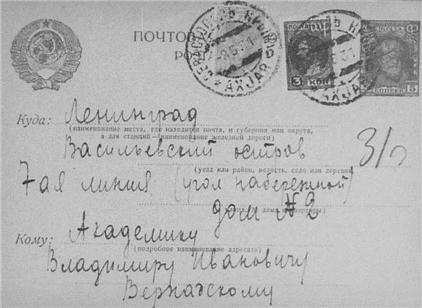 ПОЧТО
РО
СЕВАСТОПОЛЬ КРЫМ
AXJAR
AXJAR
3
Куда: Ленинград
(наименование места, где находится почта, и губернии или округа,
а для станций—наименование железной дороги)
Васильевский остров
3/п
(уезд или район, волость, село или деревня)
7ая линия (угол набережной)
дом № 2
Кому: Академику
(подробное наименование адресата)
Владимиру Ивановичу
Вернадскому